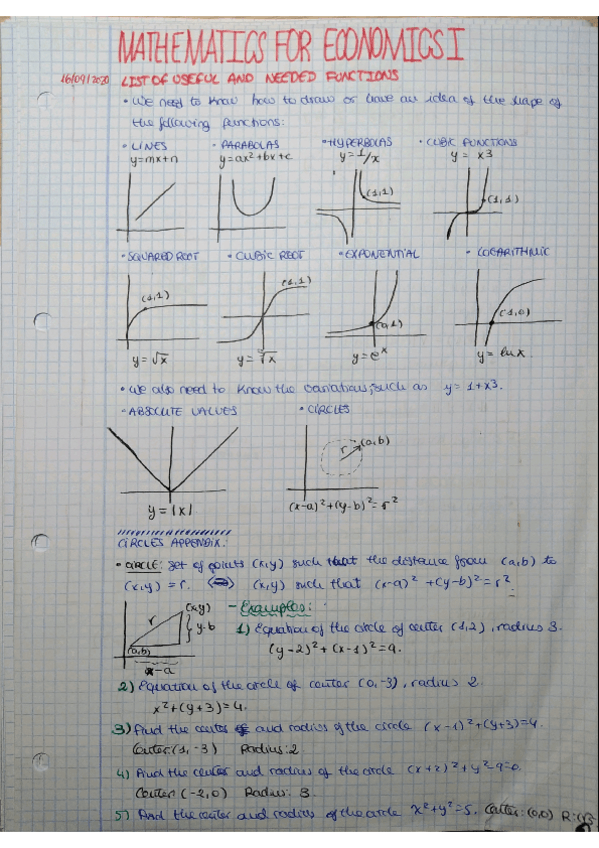 MATHEMATICS FOR ECONOMICS I
16/09/2020 LIST OF USEFUL AND NEEDED FUNCTIONS
• We need to know how to draw or have an idea of the shape of
the following functions:
• LINES • PARABOLAS • HYPERBOLAS • CUBIC FUNCTIONS
y=mx+n y=ax²+bx+c y=1/x y= x3
(1,1) (1,1)
• SQUARED ROOT • CUBIC ROOT • EXPONENTIAL • LOGARITHMIC
(1,1) (1,1) (0,1) (1,0)
y=√x y=∛x y=eˣ y= lnx.
• We also need to know the variations, such as y= 1+x3.
- ABSOLUTE VALUES • CIRCLES
r (a,b)
y=|x| (x-a)²+(y-b)²=r²
CIRCLES APPENDIX:
• CIRCLE: set of points (x,y) such that the distance from (a,b) to
(x,y) = r. ⟺ (x,y) such that (x-a)² +(y-b)²=r²
r (x,y) y-b (a,b) x-a
- Examples:
1) Equation of the circle of center (1,2), radius 3.
(y-2)²+(x-1)²=9.
2) Equation of the circle of center (0,-3), radius 2.
x²+(y+3)=4.
3) Find the center and radius of the circle (x-1)²+(y+3)=4.
Center: (1,-3) Radius: 2
4) Find the center and radius of the circle (x+2)²+y²-9=0.
Center (-2,0) Radius: 3.
5) Find the center and radius of the circle x²+y²=5. Center: (0,0) R: